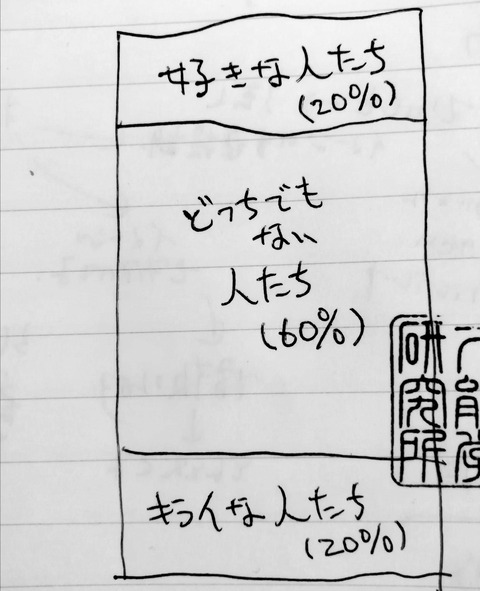 好きな人たち
(20%)
どっちでも
ない
人たち
(60%)
キライな人たち
(20%)
研究所